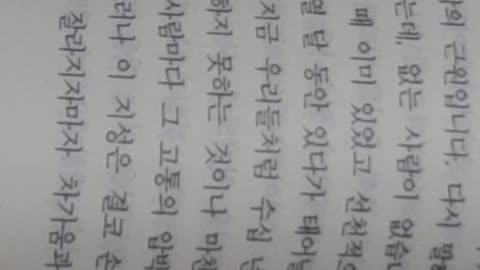 의 근원입니다. 다시 말
는데, 없는 사람이 없습니
때 이미 있었고 선천적
열 달 동안 있다가 태어날
지금 우리들처럼 수십 년
하지 못하는 것이나 마찬
사람마다 그 고통의 압박
러나 이 지성은 결코 손
잘라지자마자 차가움과